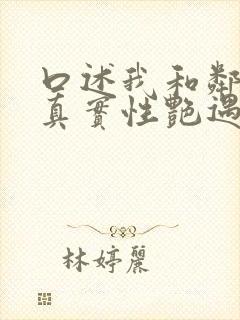 口述我和鄰
真實性艷遇
林婷麗